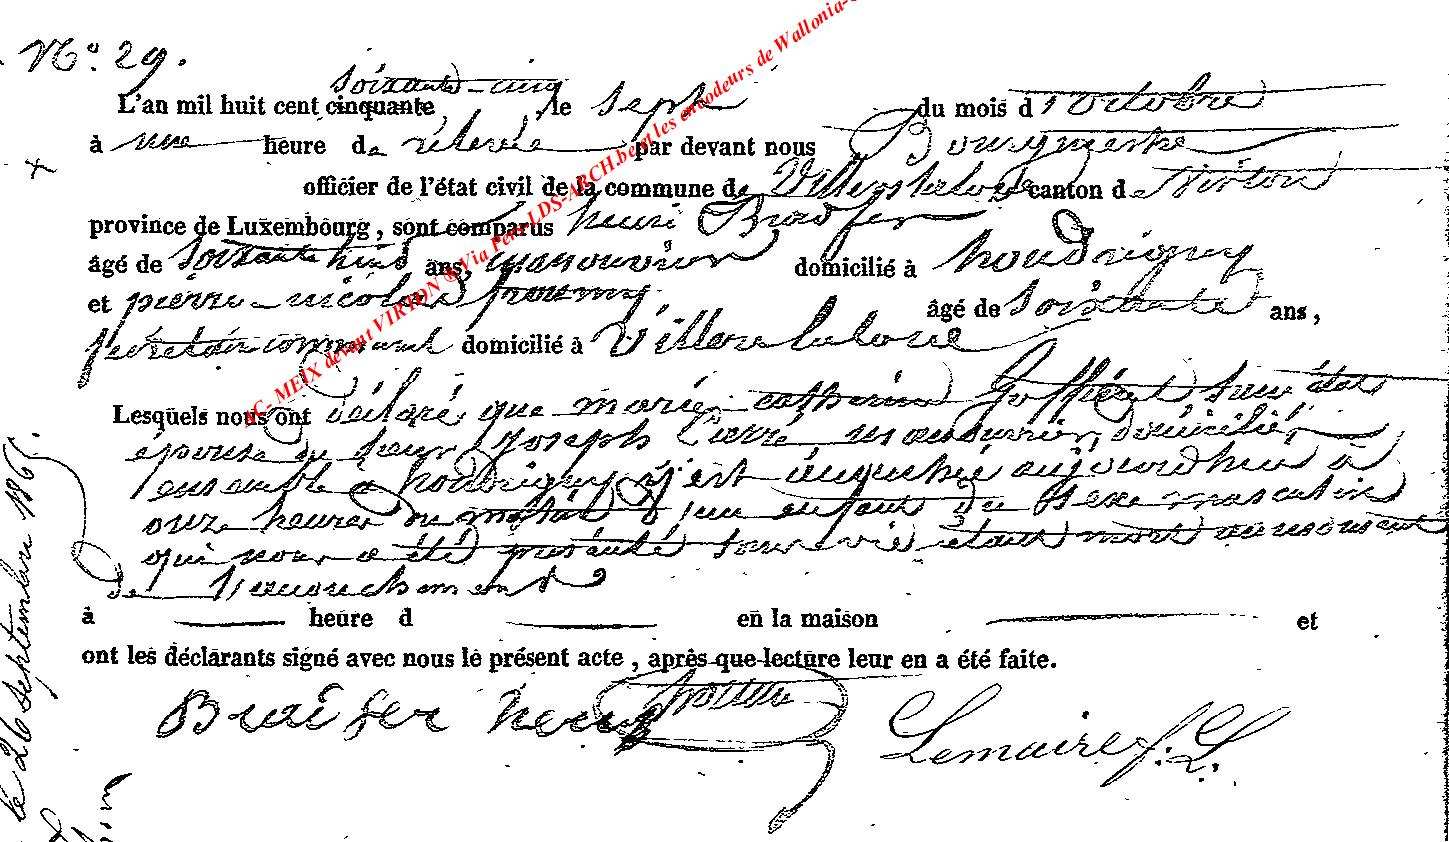 N.° 29.
soixante-cinq
L'an mil huit cent cinquante, le sept du mois d'octobre
à une heure de relevée par devant nous Bourgmestre
officier de l'état civil de la commune de Villerslaloue canton de Virton
province de Luxembourg, sont comparus henri Braffer
âgé de soixante ans, manouvrier domicilié à houdrigny
et pierre nicolas âgé de soixante ans,
secretair communal domicilié à Villerslaloue
Lesquels nous ont déclaré que marie catherine Goffinet sans état
épouse de joseph manouvrier, domiciliés
ensemble a houdrigny, s'est accouchée aujourdhui a
onze heures du matin d'un enfant du sexe masculin
qui nous a été présenté sans vie étant mort au moment
de l'accouchement
à heure d en la maison et
ont les déclarants signé avec nous le présent acte, après que lecture leur en a été faite.
henri
Lemaire f. L.
le 26 septembre 186
AC- MEIX devant VIRTON ® Via Fern LDS-ARCH.be et les encodeurs de Wallonia-